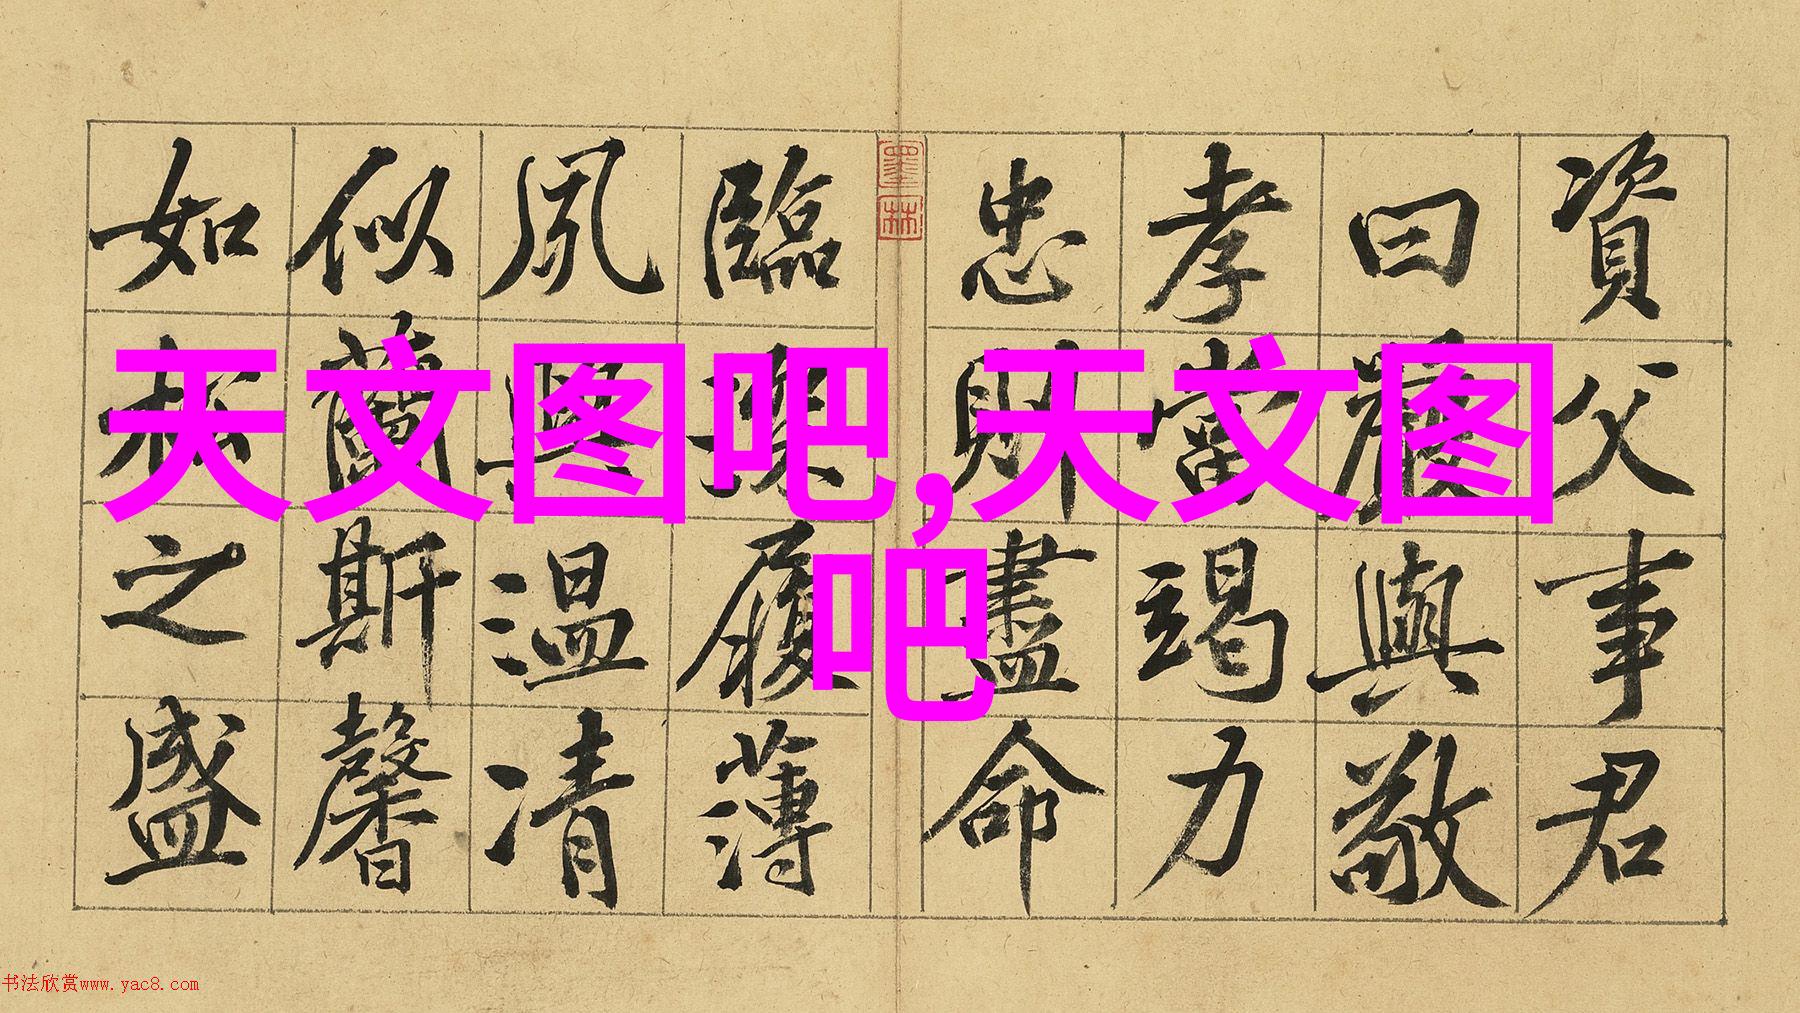 資父事君
曰嚴與敬
孝當竭力
忠則盡命
墨林
臨深履薄
夙興温凊
似蘭斯馨
如松之盛
天文图吧,天文图
吧
书法欣赏www.yac8.com